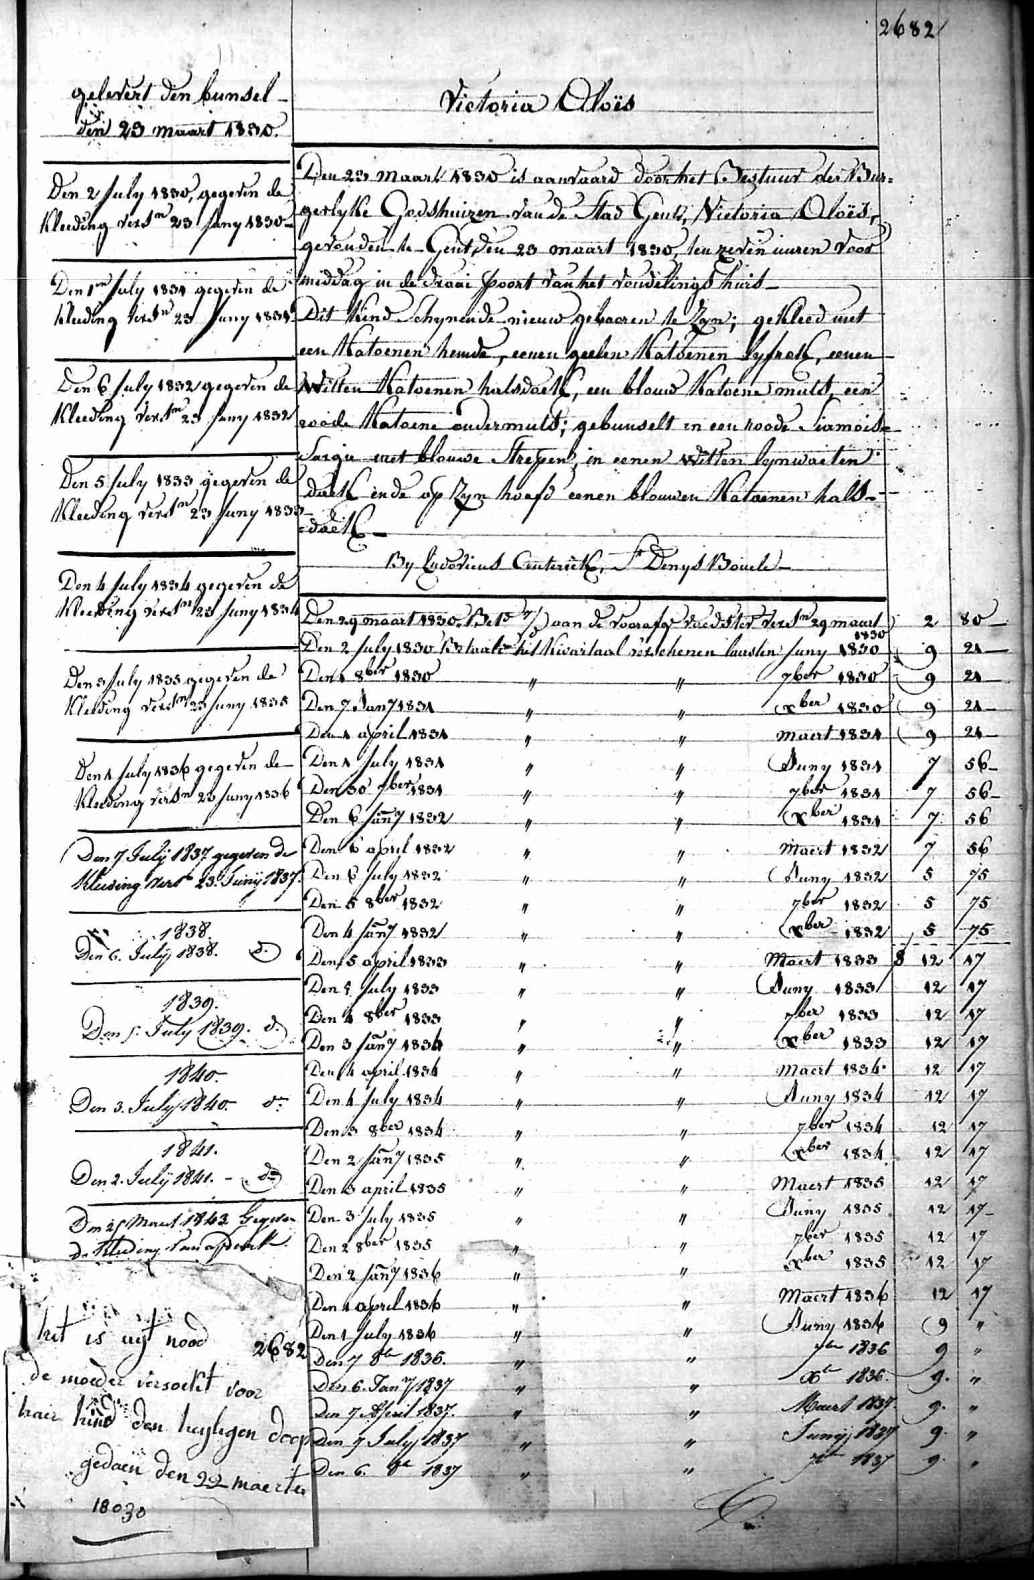 2682
gelevert den bunsel
den 23 maart 1830.
Den 2 July 1830, gegeven de
Kleeding verstn 23 Juny 1830
Den 1en July 1831 gegeven de
Kleeding verstn 23 Juny 1831
Den 6 July 1832 gegeven de
Kleeding verstn 23 Juny 1832
Den 5 July 1833 gegeven de
Kleeding verstn 23 Juny 1833
Den 4 July 1834 gegeven de
Kleeding verstn 23 Juny 1834
Den 3 July 1835 gegeven de
Kleeding verstn 23 Juny 1835
Den 1 July 1836 gegeven de
Kleeding verstn 23 Juny 1836
Den 7 July 1837 gegeven de
Kleeding verstn 23 Junij 1837.
1838.
Den 6. Julij 1838. do
1839.
Den 5 July 1839. do
1840.
Den 3. July 1840. do
1841.
Den 2. Julij 1841. - do
Den 25 Maert 1842 Gegeven
de Kleeding
het is uyt nood
2682
de moeder versoekt voor
haer kind den heyligen doop
gedaen den 22 maerte
18030
Victoria Oloïs
Den 23 maart 1830 is aanvaard door het Bestuur der Bur-
gerlyke Godshuizen van de Stad Gent, Victoria Oloïs,
gevonden te Gent, den 23 maart 1830, ten zeven uuren voor
middag in de draai poort van het vondelings huis
Dit Kind schynende nieuw gebooren te zyn; gekleed met
een Katoenen hemde, eenen geelen Katoenen lyfrok, eenen
witten Katoenen halsdoek, een blouw Katoene muts, een
roode Katoene ondermuts; gebunselt in een roode Siamoise
Sargie met blouwe Strepen, in eenen witten lynwaeten
doek ende op zyn hoofd eenen blouwen Katoenen hals-
doek
By Ludovicus St Denys Boucle
Den 29 maart 1830. aan de voorafg. verstn 29 maart 1830 2 80
Den 2 July 1830 Betaald het Kwartaal verschenen laasten Juny 1830 9 24
Den 1 8ber 1830 " " 7ber 1830 9 24
Den 7 Jany 1831 " " Xber 1830 9 24
Den 1 april 1831 " " Maert 1831 9 24
Den 1 July 1831 " " Juny 1831 7 56
Den 30 7ber 1831 " " 7ber 1831 7 56
Den 6 Jany 1832 " " Xber 1831 7 56
Den 6 april 1832 " " Maert 1832 7 56
Den 6 July 1832 " " Juny 1832 5 75
Den 5 8ber 1832 " " 7ber 1832 5 75
Den 4 Jany 1832 " " Xber 1832 5 75
Den 5 april 1833 " " Maert 1833 8 12 17
Den 5 July 1833 " " Juny 1833 12 17
Den 4 8ber 1833 " " 7ber 1833 12 17
Den 3 Jany 1834 " " Xber 1833 12 17
Den 4 april 1834 " " Maert 1834 12 17
Den 4 July 1834 " " Juny 1834 12 17
Den 3 8ber 1834 " " 7ber 1834 12 17
Den 2 Jany 1835 " " Xber 1834 12 17
Den 3 april 1835 " " Maert 1835 12 17
Den 3 July 1835 " " Juny 1835 12 17
Den 2 8ber 1835 " " 7ber 1835 12 17
Den 2 Jany 1836 " " Xber 1835 12 17
Den 1 april 1836 " " Maert 1836 12 17
Den 1 July 1836 " " Juny 1836 9 "
Den 7 8er 1836. " " 7ber 1836 9 "
Den 6. Jany 1837 " " Xer 1836. 9. "
Den 7 April 1837. " " Maert 1837. 9. "
Den 7 July 1837 " " Junij 1837 9. "
Den 6. 8e 1837 " " 7er 1837 9. "